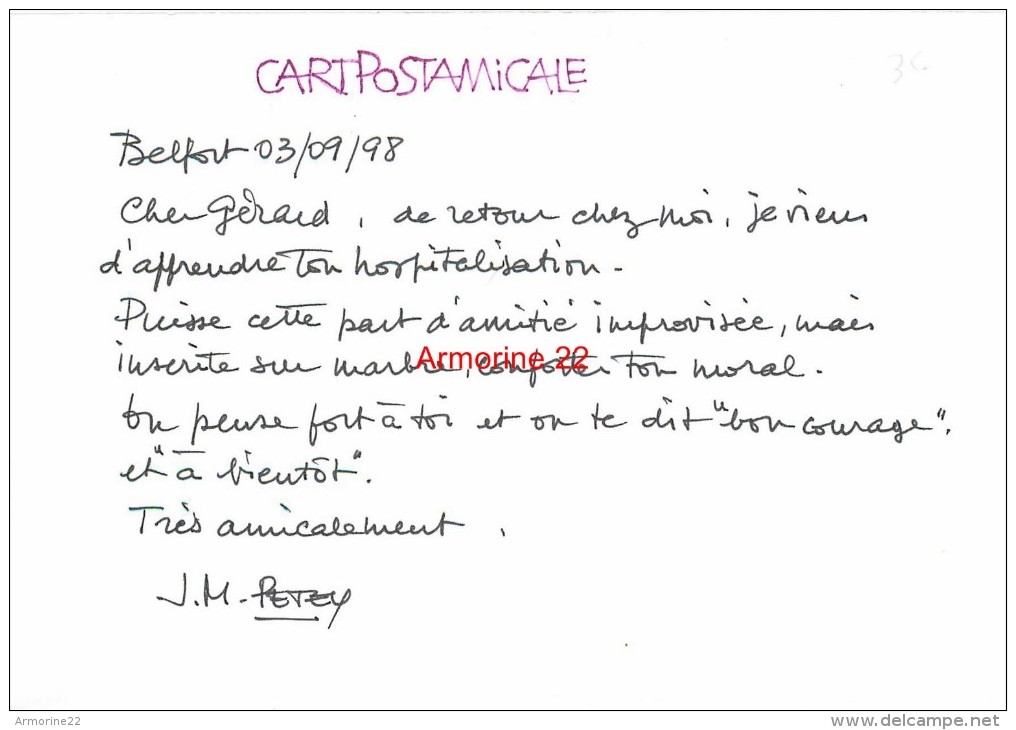 CARTPOSTAMICALE
36
Belfort 03/09/98
Cher Gérard, de retour chez moi, je viens
d'apprendre ton hospitalisation.
Puisse cette part d'amitié improvisée, mais
inscrite sur marbre, conforter ton moral.
Armorine 22
On pense fort à toi et on te dit "bon courage".
et "à bientôt".
Très amicalement,
J.M. PETEY
Armorine22
www.delcampe.net